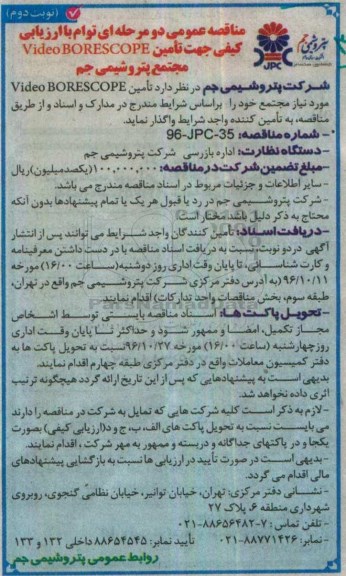 (نوبت دوم)
مناقصه عمومی دو مرحله ای توام با ارزیابی
کیفی جهت تأمین Video BORESCOPE
مجتمع پتروشیمی جم
پتروشیمی جم
JPC
شرکت پتروشیمی جم در نظر دارد تأمین Video BORESCOPE
مورد نیاز مجتمع خود را براساس شرایط مندرج در مدارک و اسناد و از طریق
مناقصه، به تأمین کننده واجد شرایط واگذار نماید.
- شماره مناقصه: 96-JPC-35
- دستگاه نظارت: اداره بازرسی شرکت پتروشیمی جم
- مبلغ تضمین شرکت در مناقصه: ۱۰۰,۰۰۰,۰۰۰(یکصد میلیون) ریال
- سایر اطلاعات و جزئیات مربوط در اسناد مناقصه مندرج می باشد.
- شرکت پتروشیمی جم در رد یا قبول هر یک یا تمام پیشنهادها بدون آنکه
محتاج به ذکر دلیل باشد مختار است.
- دریافت اسناد: تأمین کنندگان واجد شرایط می توانند پس از انتشار
آگهی در دو نوبت، نسبت به دریافت اسناد مناقصه با در دست داشتن معرفینامه
و کارت شناسائی، تا پایان وقت اداری روز دوشنبه (ساعت ۱۶/۰۰) مورخه
۹۶/۱۰/۱۱ (به آدرس دفتر مرکزی شرکت پتروشیمی جم واقع در تهران،
طبقه سوم، بخش مناقصات واحد تدارکات) اقدام نمایند.
- تحویل پاکت ها: اسناد مناقصه بایستی توسط اشخاص
مجاز تکمیل، امضا و ممهور شود و حداکثر تا پایان وقت اداری
روز چهارشنبه (ساعت ۱۶/۰۰) مورخه ۹۶/۱۰/۲۷ نسبت به تحویل پاکت ها به
دفتر کمیسیون معاملات واقع در دفتر مرکزی طبقه چهارم اقدام نمایند.
بدیهی است به پیشنهادهایی که پس از این تاریخ ارائه گردد هیچگونه ترتیب
اثری داده نخواهد شد.
- لازم به ذکر است کلیه شرکت هایی که تمایل به شرکت در مناقصه را دارند
می بایست نسبت به تحویل پاکت های الف، ب، ج و د(ارزیابی کیفی) بصورت
یکجا و در پاکتهای جداگانه و دربسته و ممهور به مهر شرکت، اقدام نمایند.
- بدیهی است در صورت تأیید در ارزیابی ها نسبت به بازگشایی پیشنهادهای
مالی اقدام می گردد.
- نشانی دفتر مرکزی: تهران، خیابان توانیر، خیابان نظامی گنجوی، روبروی
شهرداری منطقه ۶، پلاک ۲۷
- تلفن تماس: ۷-۸۸۶۵۶۴۸۲-۰۲۱
- نمابر: ۸۸۷۷۱۴۲۶-۰۲۱ تأیید نمابر: ۸۸۶۵۴۵۴۵ داخلی ۱۳۲ و ۱۳۳
روابط عمومی پتروشیمی جم